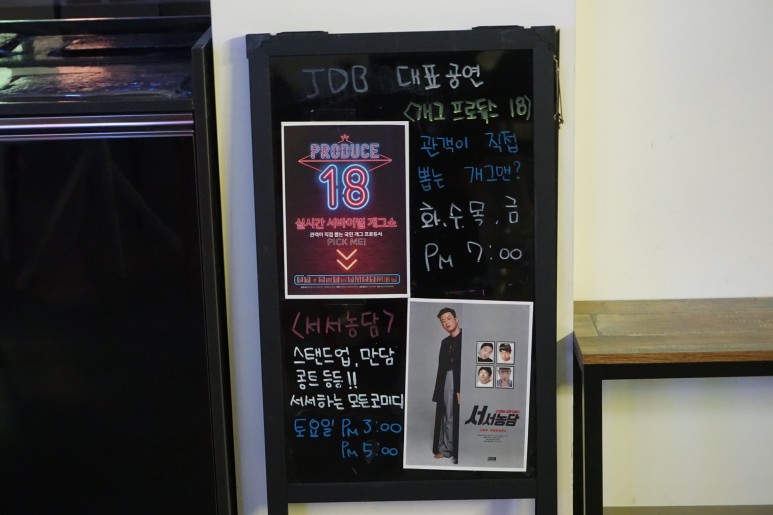 JDB 대표공연
<개그 프로듀스 18>
PRODUCE
18
실시간 서바이벌 개그쇼
관객이 직접 뽑는 국민 개그 프로듀서
PICK ME!
관객이 직접
뽑는 개그맨?
화.수.목.금
PM 7:00
<서서농담>
스탠드업, 만담
콩트 등등!!
서서하는 모든코미디
토요일 PM 3:00
PM 5:00
서서농담